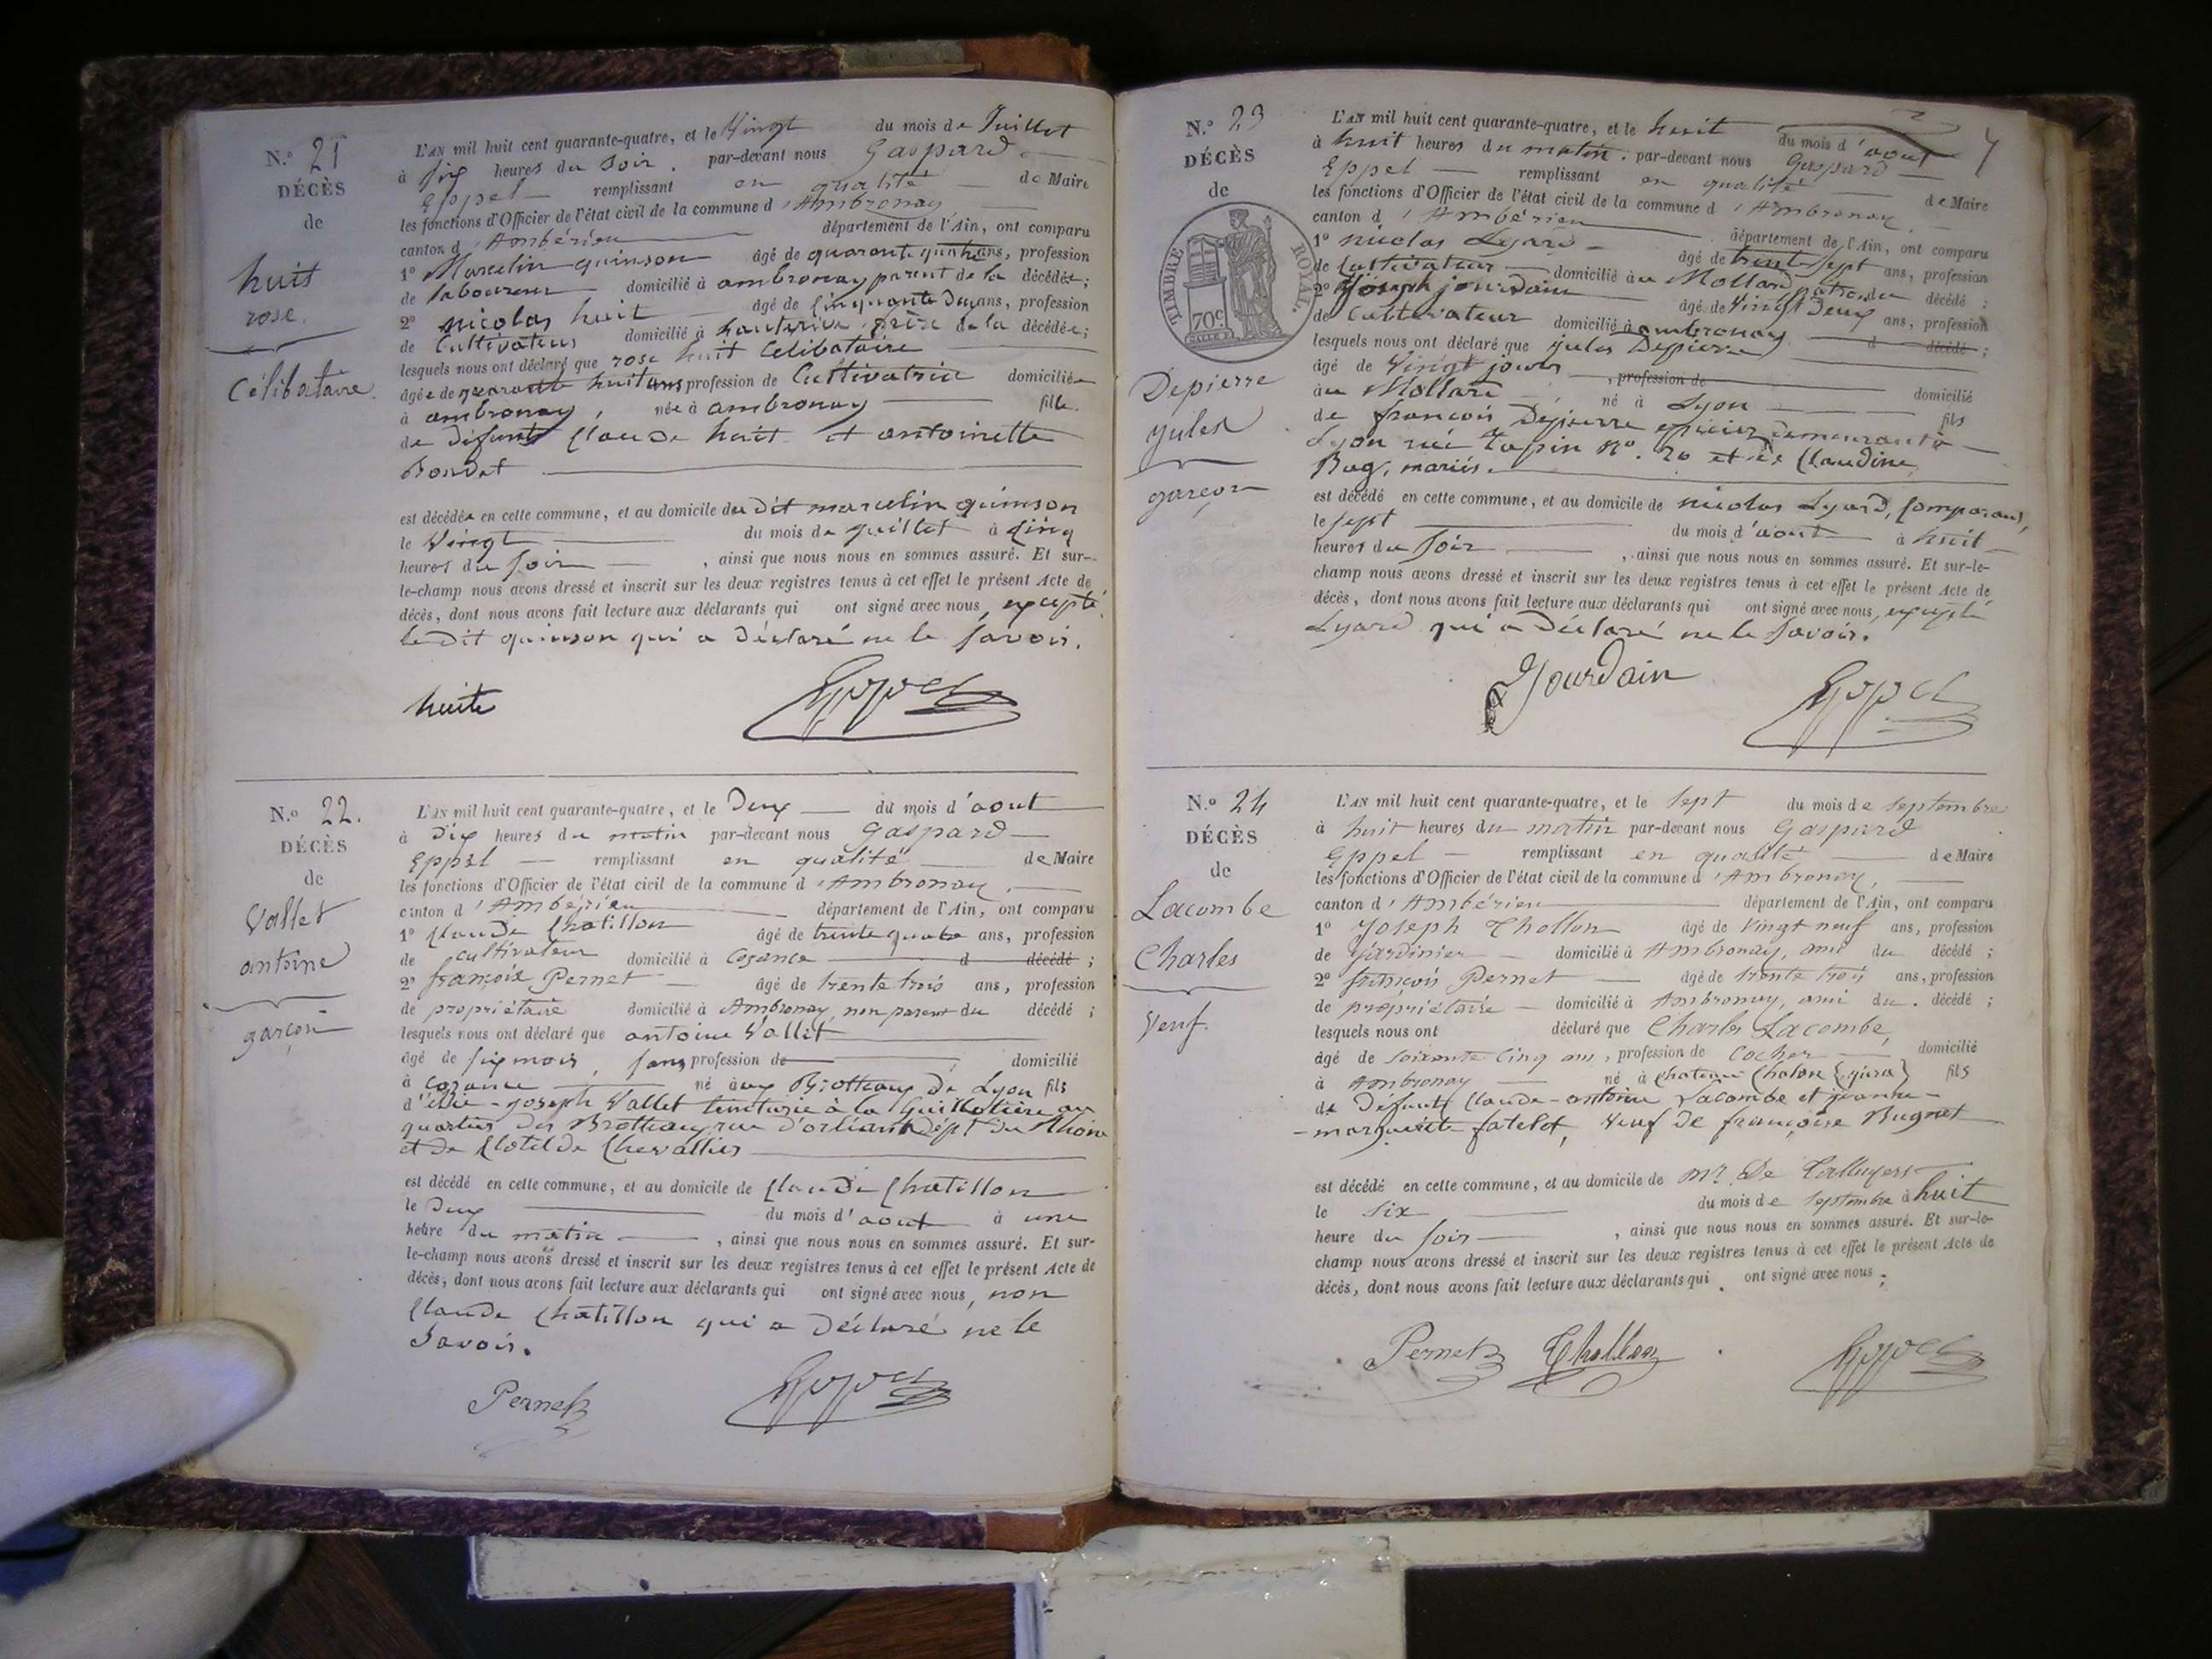 N.° 21
DÉCÈS
de
huit
rose
Célibataire.
L'AN mil huit cent quarante-quatre, et le Vingt du mois de Juillet
à six heures du soir. par-devant nous Gaspard
Eppel remplissant en qualité de Maire
les fonctions d'Officier de l'état civil de la commune d'Ambronay
canton d'Ambérieu département de l'Ain, ont comparu
1° Marcelin quinson âgé de quarante quatre ans, profession
de laboureur domicilié à ambronay parent de la décédée;
2° nicolas huit âgé de Cinquante Deux ans, profession
de Cultivateur domicilié à hauterive frère de la décédée;
lesquels nous ont déclaré que rose huit Celibataire
âgée de quarante huit ans profession de Cultivatrice domiciliée
à ambronay, née à ambronay fille
de défunts Claude huit et antoinette
Bondet
est décédée en cette commune, et au domicile du Dit marcelin quinson
le Vingt du mois de juillet à Cinq
heures du soir, ainsi que nous nous en sommes assuré. Et sur-
le-champ nous avons dressé et inscrit sur les deux registres tenus à cet effet le présent Acte de
décès, dont nous avons fait lecture aux déclarants qui ont signé avec nous, excepté
le Dit quinson qui a Déclaré ne le savoir.
huite Eppel
N.° 22.
DÉCÈS
de
Vallet
antoine
garçon
L'AN mil huit cent quarante-quatre, et le Deux du mois d'aout
à Dix heures du matin par-devant nous Gaspard
Eppel remplissant en qualité de Maire
les fonctions d'Officier de l'état civil de la commune d'Ambronay,
canton d'Ambérieu département de l'Ain, ont comparu
1° Claude Chatillon âgé de trente quatre ans, profession
de cultivateur domicilié à Cozance d décédé;
2° françois Pernet âgé de trente trois ans, profession
de propriétaire domicilié à Ambronay, non parent du décédé;
lesquels nous ont déclaré que antoine Vallet
âgé de six mois, sans profession de, domicilié
à cozance né aux Brotteaux De Lyon fils
d'élie-joseph Vallet teinturié à la Guillotière au
quartier des Brotteaux rue d'orléans Dépt. du Rhône
et de Clotilde Chevallier
est décédé en cette commune, et au domicile de Claude Chatillon
le Deux du mois d'aout à une
heure du matin, ainsi que nous nous en sommes assuré. Et sur-
le-champ nous avons dressé et inscrit sur les deux registres tenus à cet effet le présent Acte de
décès, dont nous avons fait lecture aux déclarants qui ont signé avec nous, non
Claude Chatillon qui a Déclaré ne le
savoir.
Pernet Eppel
N.° 23
DÉCÈS
de
TIMBRE ROYAL.
70c
Depierre
jules
garçon
L'AN mil huit cent quarante-quatre, et le huit du mois d'aout
à huit heures du matin. par-devant nous Gaspard
Eppel remplissant en qualité de Maire
les fonctions d'Officier de l'état civil de la commune d'Ambronay
canton d'Ambérieu département de l'Ain, ont comparu
1° nicolas Lyard âgé de trente sept ans, profession
de Cultivateur domicilié au Mollard patron du décédé;
2° Joseph jourdain âgé de Vingt Deux ans, profession
de Cultivateur domicilié à ambronay d décédé;
lesquels nous ont déclaré que jules Depierre
âgé de Vingt jours, profession de domicilié
au Mollard né à Lyon fils
de françois Depierre épicier demeurant à
Lyon rue Tapin N°. 20 et de Claudine
Bug, mariés.
est décédé en cette commune, et au domicile de nicolas Lyard, Comparant,
le sept du mois d'aout à huit
heures du soir, ainsi que nous nous en sommes assuré. Et sur-le-
champ nous avons dressé et inscrit sur les deux registres tenus à cet effet le présent Acte de
décès, dont nous avons fait lecture aux déclarants qui ont signé avec nous, excepté
Lyard qui a Déclaré ne le savoir.
Jourdain Eppel
N.° 24
DÉCÈS
de
Lacombe
Charles
Veuf.
L'AN mil huit cent quarante-quatre, et le sept du mois de septembre
à huit heures du matin par-devant nous Gaspard
Eppel remplissant en qualité de Maire
les fonctions d'Officier de l'état civil de la commune d'Ambronay,
canton d'Ambérieu département de l'Ain, ont comparu
1° Joseph Thollon âgé de Vingt neuf ans, profession
de Jardinier domicilié à Ambronay, ami du décédé;
2° françois Pernet âgé de trente trois ans, profession
de propriétaire domicilié à Ambronay, ami du décédé;
lesquels nous ont déclaré que Charles Lacombe,
âgé de soixante Cinq ans, profession de Cocher domicilié
à Ambronay né à chateau Chalon (jura) fils
de Défunts Claude-antoine Lacombe et jeanne-
-marguerite fatelet, Veuf de françoise Bugnet
est décédé en cette commune, et au domicile de Mr. De Talluyers
le six du mois de septembre à huit
heure du soir, ainsi que nous nous en sommes assuré. Et sur-le-
champ nous avons dressé et inscrit sur les deux registres tenus à cet effet le présent Acte de
décès, dont nous avons fait lecture aux déclarants qui ont signé avec nous;
Pernet Thollon Eppel